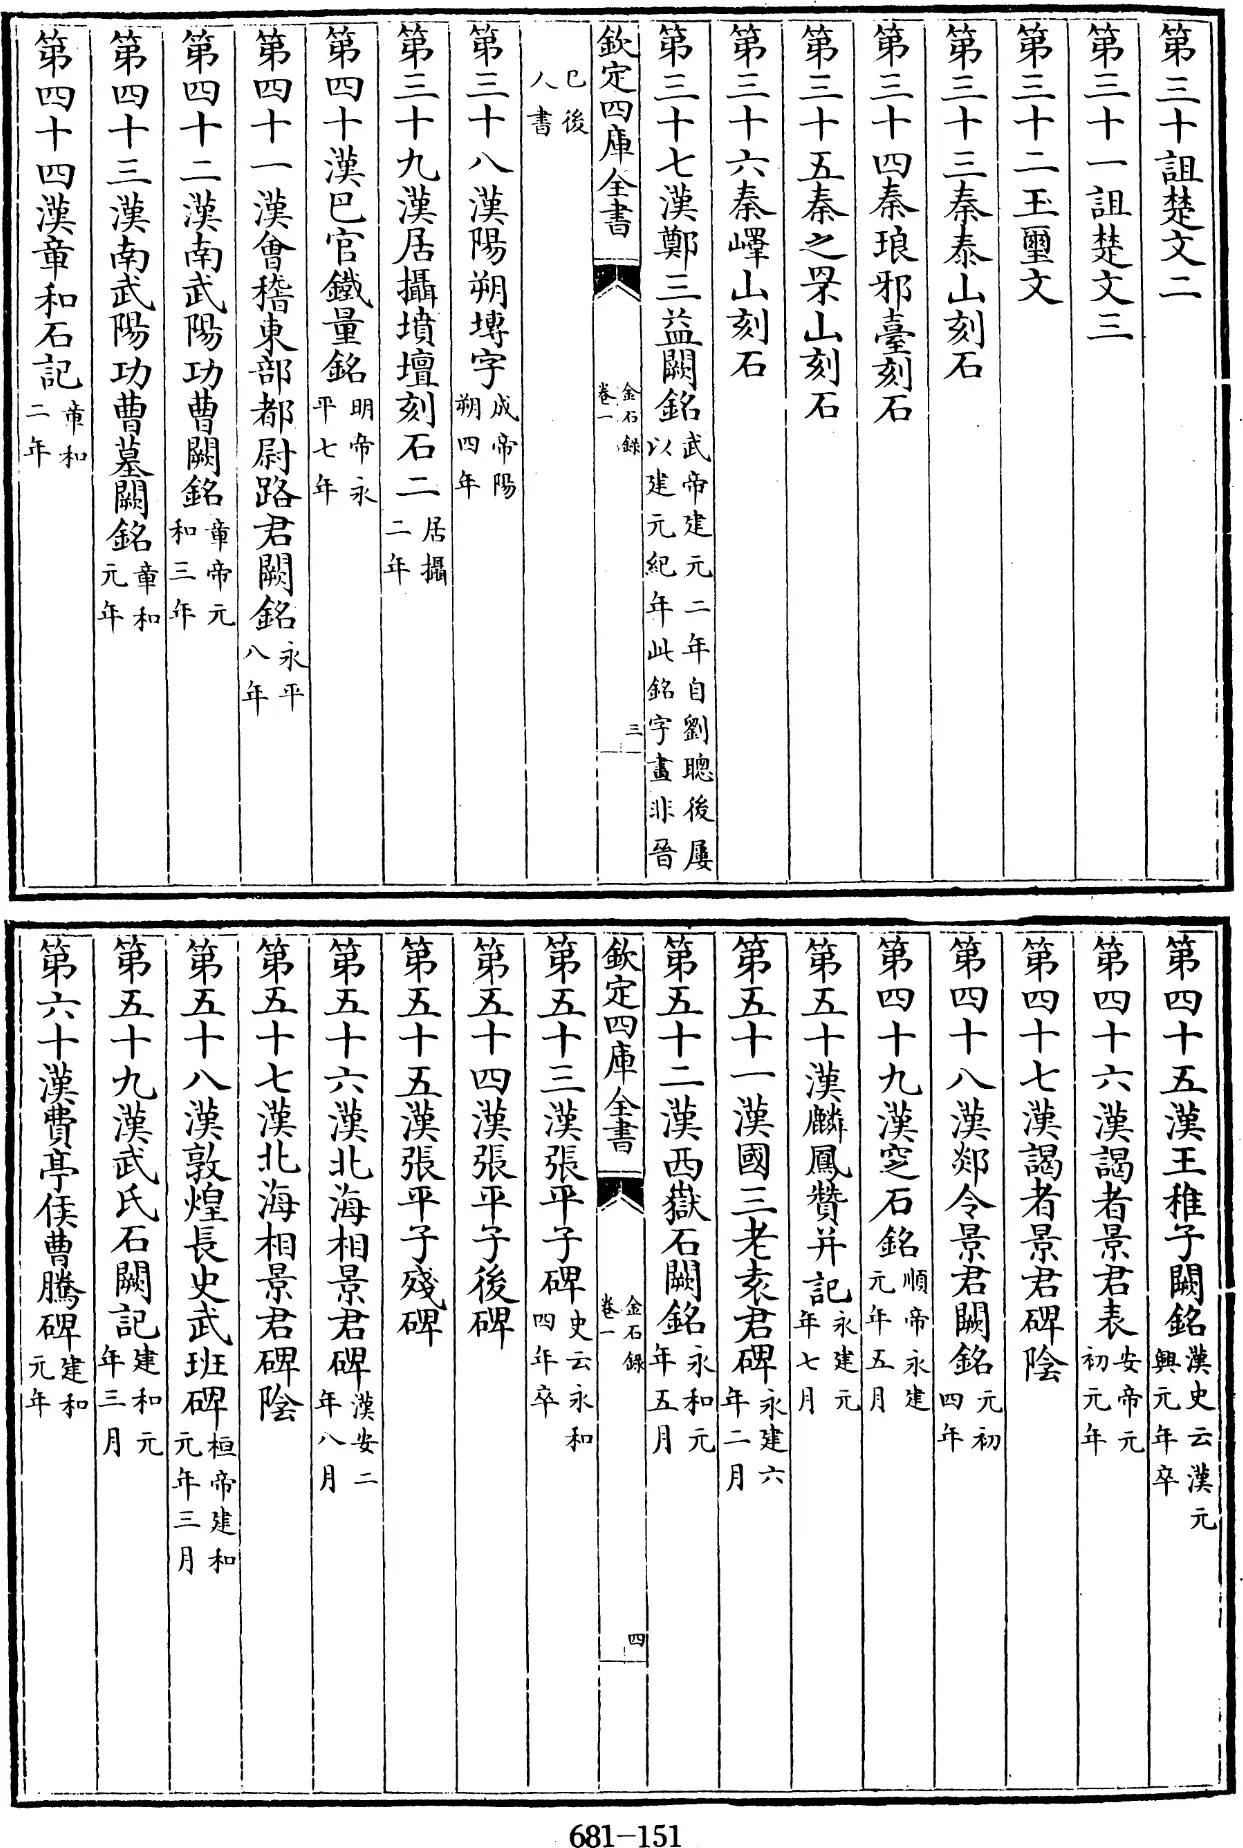 第三十詛楚文二
第三十一詛楚文三
第三十二玉璽文
第三十三秦泰山刻石
第三十四秦琅邪臺刻石
第三十五秦之罘山刻石
第三十六秦嶧山刻石
第三十七漢鄭三益闕銘武帝建元二年自劉聰後屢以建元紀年此銘字畫非晉
欽定四庫全書
金石錄
卷一
三
已後人書
第三十八漢陽朔塼字成帝陽朔四年
第三十九漢居攝墳壇刻石二居攝二年
第四十漢巴官鐵量銘明帝永平七年
第四十一漢會稽東部都尉路君闕銘永平八年
第四十二漢南武陽功曹闕銘章帝元和三年
第四十三漢南武陽功曹墓闕銘章和元年
第四十四漢章和石記章和二年
第四十五漢王稚子闕銘漢史云漢元興元年卒
第四十六漢謁者景君表安帝元初元年
第四十七漢謁者景君碑陰
第四十八漢郯令景君闕銘元初四年
第四十九漢窆石銘順帝永建元年五月
第五十漢麟鳳贊并記永建元年七月
第五十一漢國三老袁君碑永建六年二月
第五十二漢西嶽石闕銘永和元年五月
欽定四庫全書
金石錄
卷一
四
第五十三漢張平子碑史云永和四年卒
第五十四漢張平子後碑
第五十五漢張平子殘碑
第五十六漢北海相景君碑漢安二年八月
第五十七漢北海相景君碑陰
第五十八漢敦煌長史武班碑桓帝建和元年三月
第五十九漢武氏石闕記建和元年三月
第六十漢費亭侯曹騰碑建和元年
681-151